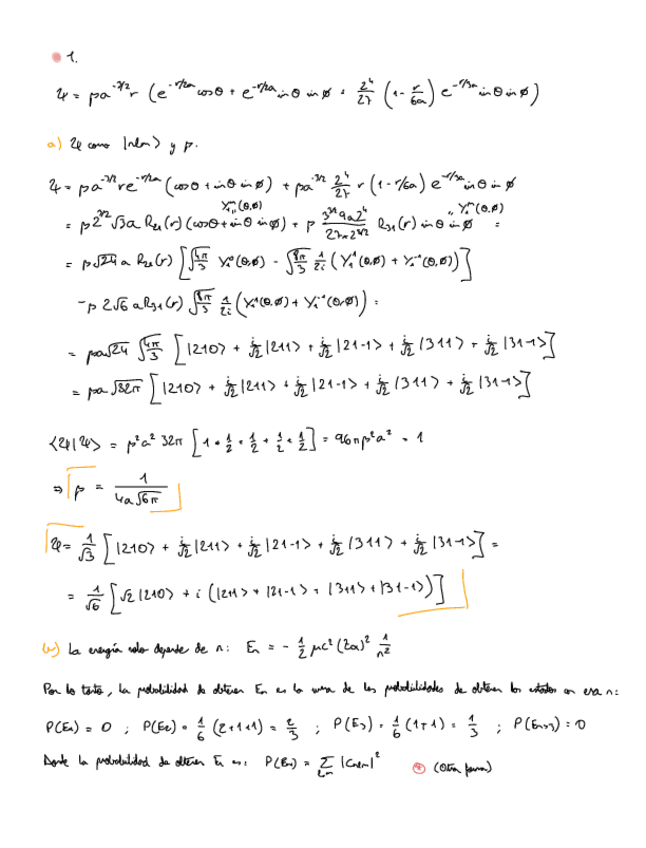 1.
ψ = pa^{-3/2} r (e^{-r/2a} cosθ + e^{-r/2a} sinθ sinφ + 2^4/27 (1 - r/6a) e^{-r/3a} sinθ sinφ)
a) ψ como |nlm> y p.
ψ = pa^{-3/2} r e^{-r/2a} (cosθ + sinθ sinφ) + pa^{-3/2} 2^4/27 r (1 - r/6a) e^{-r/3a} sinθ sinφ
= p 2^{3/2} √3 a R_{21}(r) (cosθ + sinθ sinφ) + p R_{31}(r) sinθ sinφ =
= p√24 a R_{21}(r) [√(4π/3) Y_1^0(θ,φ) - √(8π/3) 1/2i (Y_1^1(θ,φ) + Y_1^{-1}(θ,φ))]
- p 2√6 a R_{31}(r) √(8π/3) 1/2i (Y_1^1(θ,φ) + Y_1^{-1}(θ,φ)) =
= pa√24 √(4π/3) [|210> + i/√2 |211> + i/√2 |21-1> + i/√2 |311> + i/√2 |31-1>]
= pa √32π [|210> + i/√2 |211> + i/√2 |21-1> + i/√2 |311> + i/√2 |31-1>]
<ψ|ψ> = p²a² 32π [1 + 1/2 + 1/2 + 1/2 + 1/2] = 96πp²a² = 1
⇒ p = 1/(4a√6π)
ψ = 1/√3 [|210> + i/√2 |211> + i/√2 |21-1> + i/√2 |311> + i/√2 |31-1>] =
= 1/√6 [√2 |210> + i (|211> + |21-1> + |311> + |31-1>)]
b) La energía solo depende de n: E_n = - 1/2 μc² (Zα)² 1/n²
Por lo tanto, la probabilidad de obtener E_n es la suma de las probabilidades de obtener los estados con esa n:
P(E_1) = 0 ; P(E_2) = 1/6 (2+1+1) = 2/3 ; P(E_3) = 1/6 (1+1) = 1/3 ; P(E_{n>3}) = 0
Donde la probabilidad de obtener E_n es: P(E_n) = Σ_{l,m} |C_{nlm}|² (Otra forma)